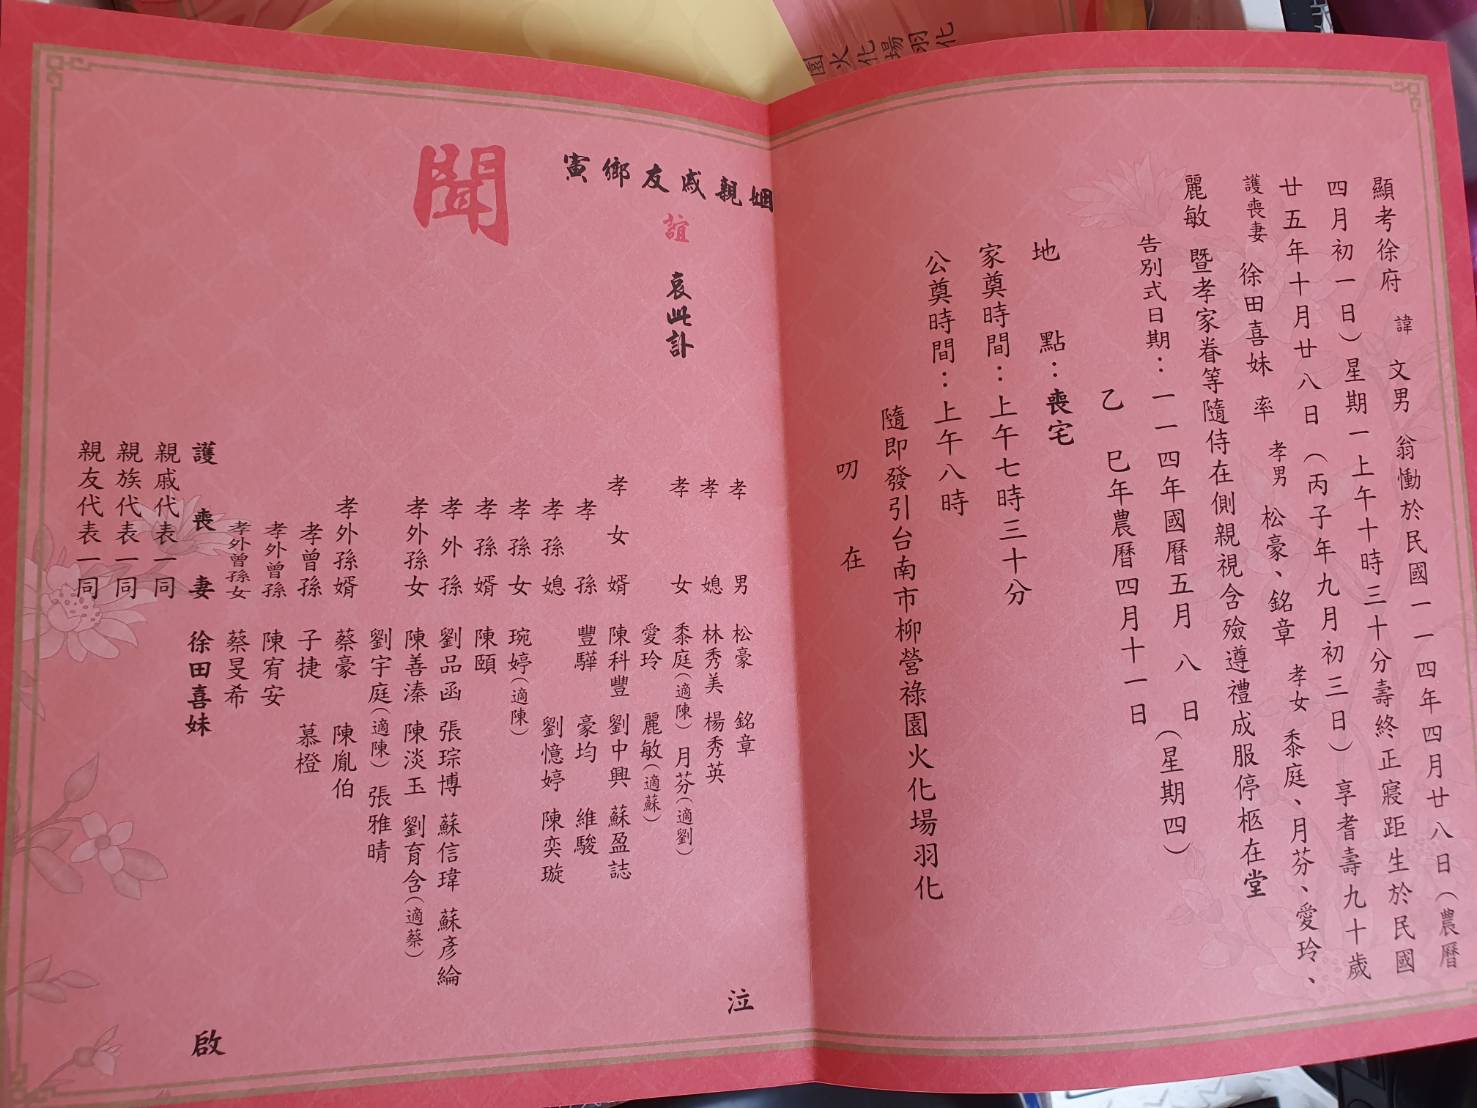 顯考徐府 諱 文男 翁慟於民國一一四年四月廿八日（農曆
四月初一日）星期一上午十時三十分壽終正寢距生於民國
廿五年十月廿八日（丙子年九月初三日）享耆壽九十歲
護喪妻 徐田喜妹 率 孝男 松豪、銘章 孝女 黍庭、月芬、愛玲、
麗敏 暨孝家眷等隨侍在側親視含殮遵禮成服停柩在堂
告別式日期：一一四年國曆五月 八 日（星期四）
乙 巳年農曆四月十一日
地 點：喪宅
家奠時間：上午七時三十分
公奠時間：上午八時
隨即發引台南市柳營祿園火化場羽化
叨 在
姻親戚友鄉寅
誼
哀此訃
聞
孝 男 松豪 銘章 泣
孝 媳 林秀美 楊秀英
孝 女 黍庭（適陳）月芬（適劉）
愛玲 麗敏（適蘇）
孝 女 婿 陳科豐 劉中興 蘇盈誌
孝 孫 豐驊 豪均 維駿
孝 孫 媳 劉憶婷 陳奕璇
孝 孫 女 琬婷（適陳）
孝 孫 婿 陳頤
孝 外 孫 劉品函 張琮博 蘇信瑋 蘇彥綸
孝外孫女 陳善溱 陳淡玉 劉育含（適蔡）
劉宇庭（適陳）張雅晴
孝外孫婿 蔡豪 陳胤伯
孝曾孫 子捷 慕橙
孝外曾孫 陳宥安
孝外曾孫女 蔡旻希
護 喪 妻 徐田喜妹
親戚代表一同
親族代表一同
親友代表一同
啟
園火化場羽化